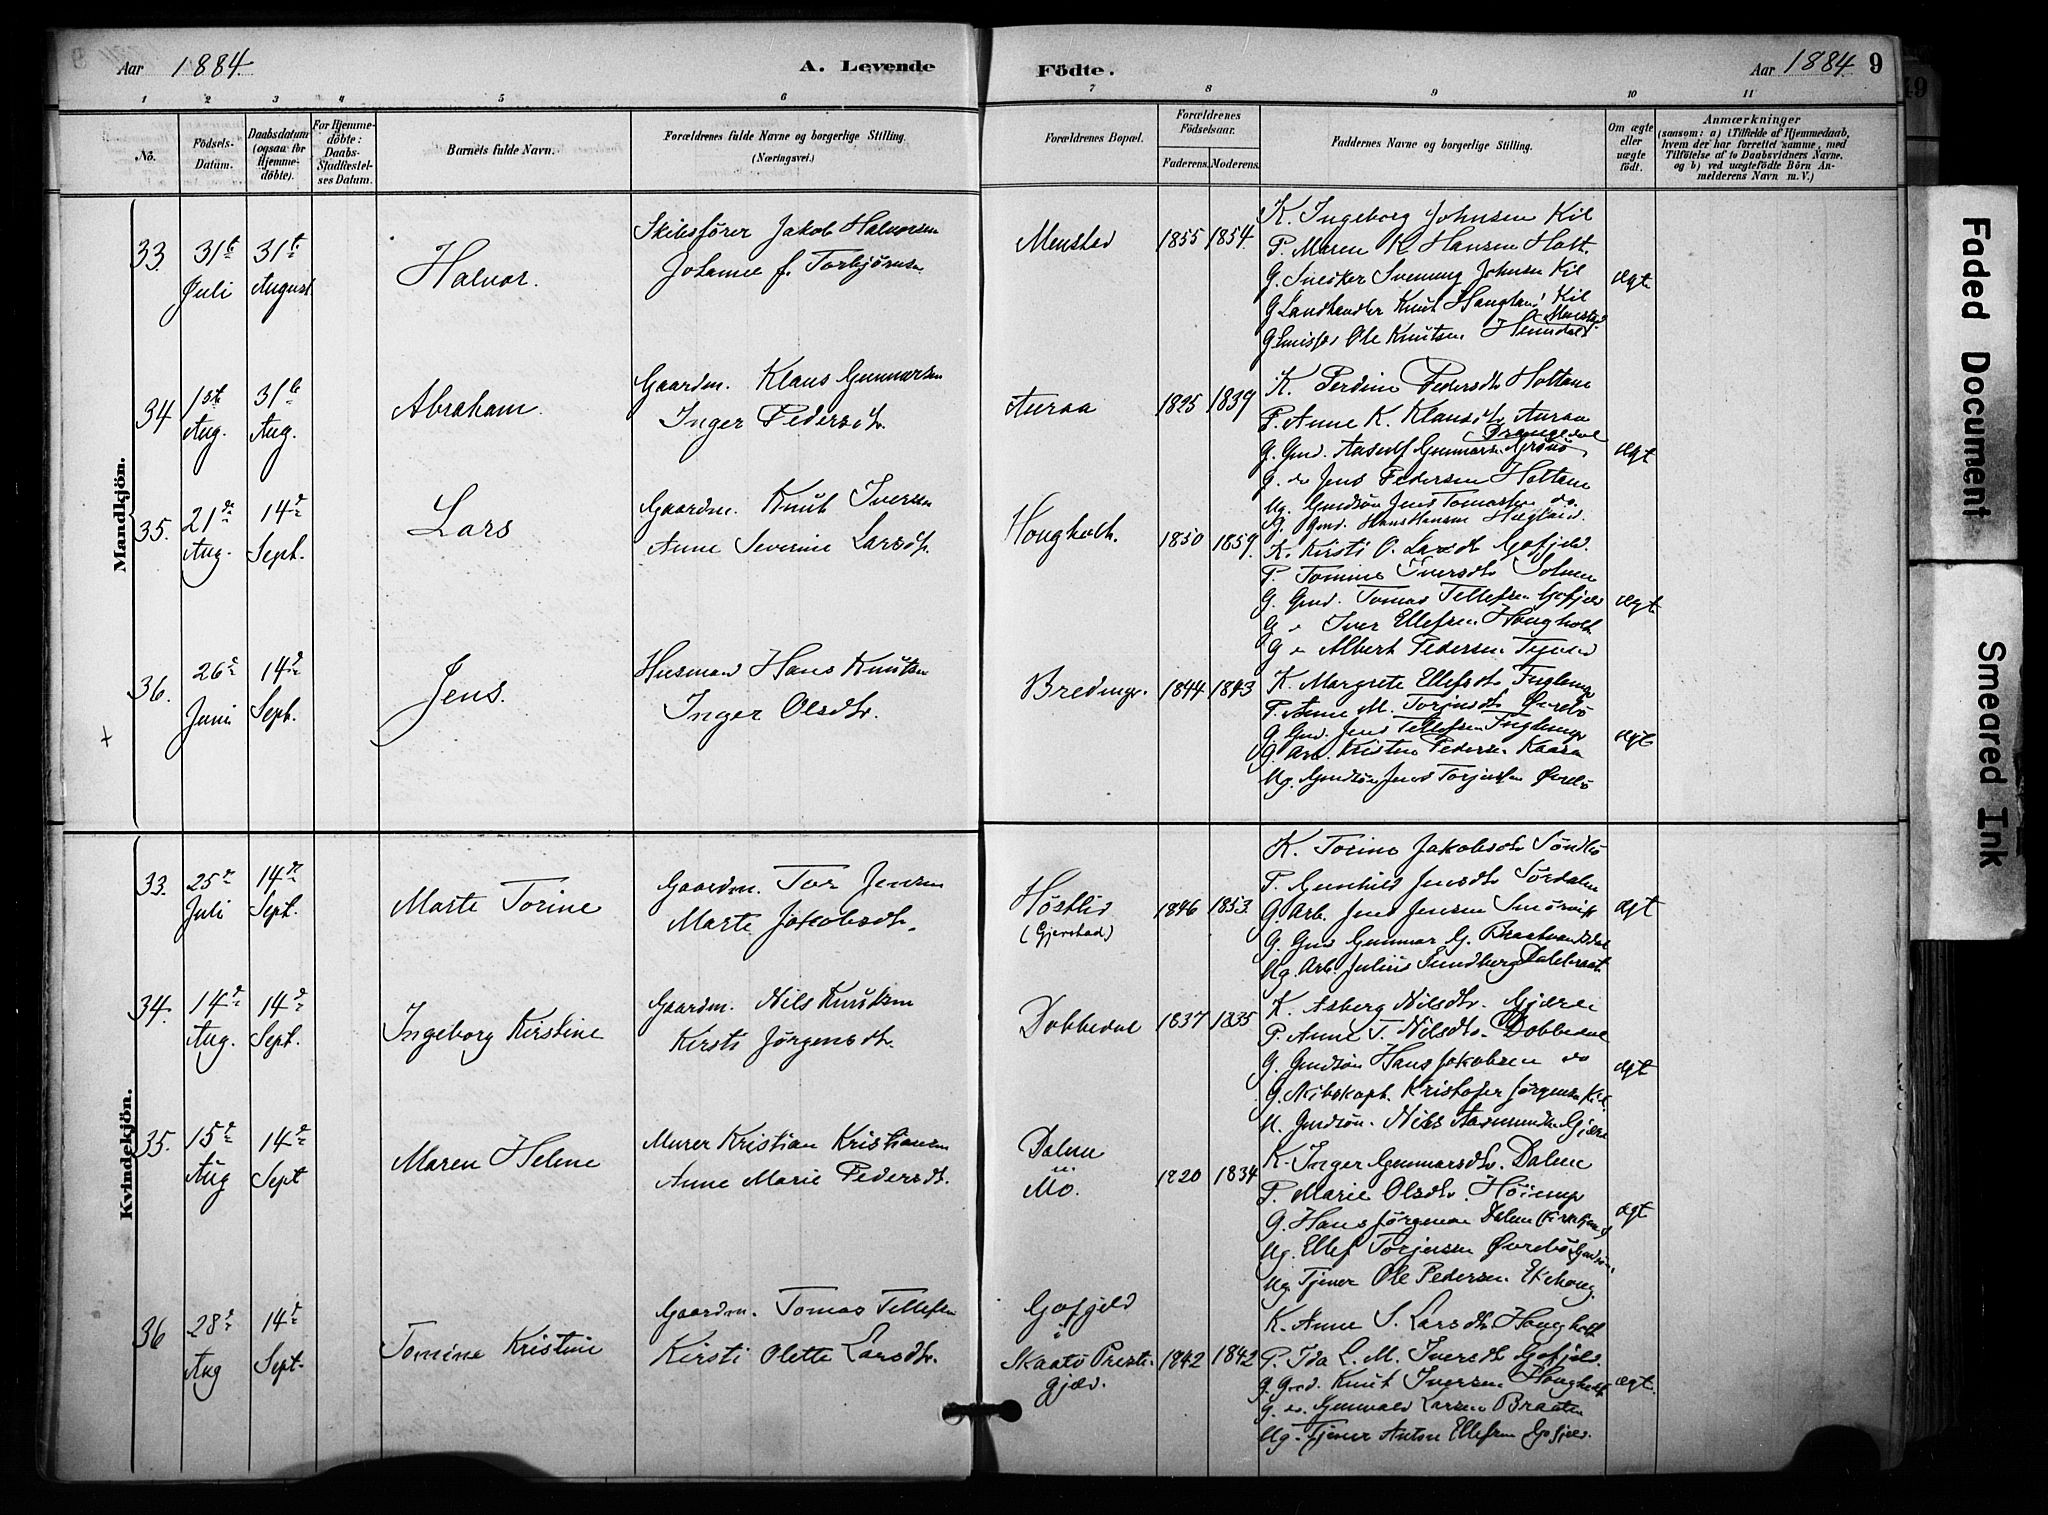 Aar 1884.
A. Levende
Födte.
Aar 1884.
9
1 2 3 4 5 6 7 8 9 10 11
No.
Födsels-Datum.
Daabsdatum (ogsaa for Hjemme-döbte).
For Hjemme-döbte: Daabs-Stadfæstel-ses Datum.
Barnets fulde Navn.
Forældrenes fulde Navne og borgerlige Stilling. (Næringsvei.)
Forældrenes Bopæl.
Forældrenes Födselsaar.
Faderens. Moderens.
Faddernes Navne og borgerlige Stilling.
Om ægte eller uægte født.
Anmærkninger
(saasom: a) i Tilfælde af Hjemmedaab,
hvem der har forrettet samme, med
Tilföielse af to Daabsvidners Navne.
og b) ved uægtefödte Börn An-
melderens Navn m. V.)
Mandkjön.
33. 31te Juli 31te August
Halvor.
Skibsfører Jakob Halvorsen
Johanne f. Torbjørnsen
Menstad 1855 1854.
K. Ingeborg Johnsen Kil
P. Maren K. Hansen Holt.
G. Snedker Svenung Johnsen Kil
G. Landhandler Knut Kil
G. Ole Knutsen
ægt.
34 1ste Aug. 31te Aug.
Abraham.
Gaardm. Klaus Gunnarsen
Inger Pedersdtr.
Auraa 1825 1839
K. Perdine Pedersdtr Holtane
P. Anne K. Klausdtr Auraa
Drangedal
G. Gmd. Aasulf Gunnarsen
G. do Jens Pedersen Holtane
Ug. Gmdsøn Jens Tomassen do.
G. Gmd. Hans Hansen
ægt
35. 21de Aug. 14de Sept.
Lars
Gaardm. Knut Iversen
Anne Severine Larsdtr.
Hougholt. 1850 1859.
K. Kirsti O. Larsdtr Gofjeld.
P. Tomine Iversdtr
G. Gmd. Tomas Tellefsen Gofjeld
G " Iver Ellefsen Hougholt
G " Albert Pedersen
ægt.
+ 36. 26de Juni 14de Sept.
Jens.
Husmand Hans Knutsen
Inger Olsdtr.
1844 1843
K. Margrete Ellefsdtr
P. Anne M. Torjusdtr Øvrebø
G. Gmd. Jens Tellefsen
G. Arb. Kristen Pedersen Kaasa
Ug. Gmdsøn Jens Torjussen Øvrebø
ægt
Kvindekjön.
33. 25de Juli 14de Sept.
Marte Torine
Gaardm. Tor Jensen
Marte Jakobsdtr.
Høstlid (Gjerstad) 1846 1853
K. Torine Jakobsdtr Søndbø
P. Gunhild Jensdtr Sørdalen
G. Arb. Jens Jensen Smørvik
G. Gmd Gunnar G.
Ug. Arb. Julius Sundberg
ægt
34. 14de Aug. 14de Sept.
Ingeborg Kirstine
Gaardm. Nils Knutsen
Kirsti Jørgensdtr.
Dobbedal 1837 1835
K. Asberg Nilsdtr. Gjærei
P. Anne T. Nilsdtr. Dobbedal
G. Gmdsøn Hans Jakobsen do
G. Skibskapt. Kristofer Jørgensen Kil.
U. Gmdsøn. Nils Aasmundsen Gjærei
ægt
35. 15de Aug 14de Sept
Maren Helene
Murer Kristian Kristiansen
Anne Marie Pedersdtr.
Dalene " Mo. 1820 1834
K. Inger Gunnarsdtr. Dalene
P. Marie Olsdtr.
G. Hans Jørgensen Dalene
Ug. Ellef Torjussen Øvrebø Gmdsøn
Ug Tjener Ole Pedersen Ekhoug.
ægt
36 28de Aug 14de Sept.
Tomine Kristine
Gaardm. Tomas Tellefsen
Kirsti Olette Larsdtr.
Gofjeld i Skaatø Præstegjæld. 1842 1842
K. Anne S. Larsdtr. Hougholt
P. Ida L. M. Iversdtr Gofjeld.
G. Gmd. Knut Iversen Hougholt
G. do. Gunvald Larsen Braaten
Ug. Tjener Anton Ellefsen Gofjeld.
ægt.
49
Faded Document
Smeared Ink